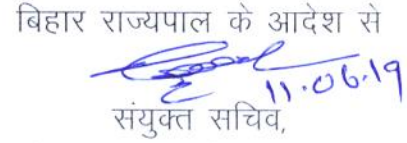 बिहार राज्यपाल के आदेश से
11.06.19
संयुक्त सचिव,